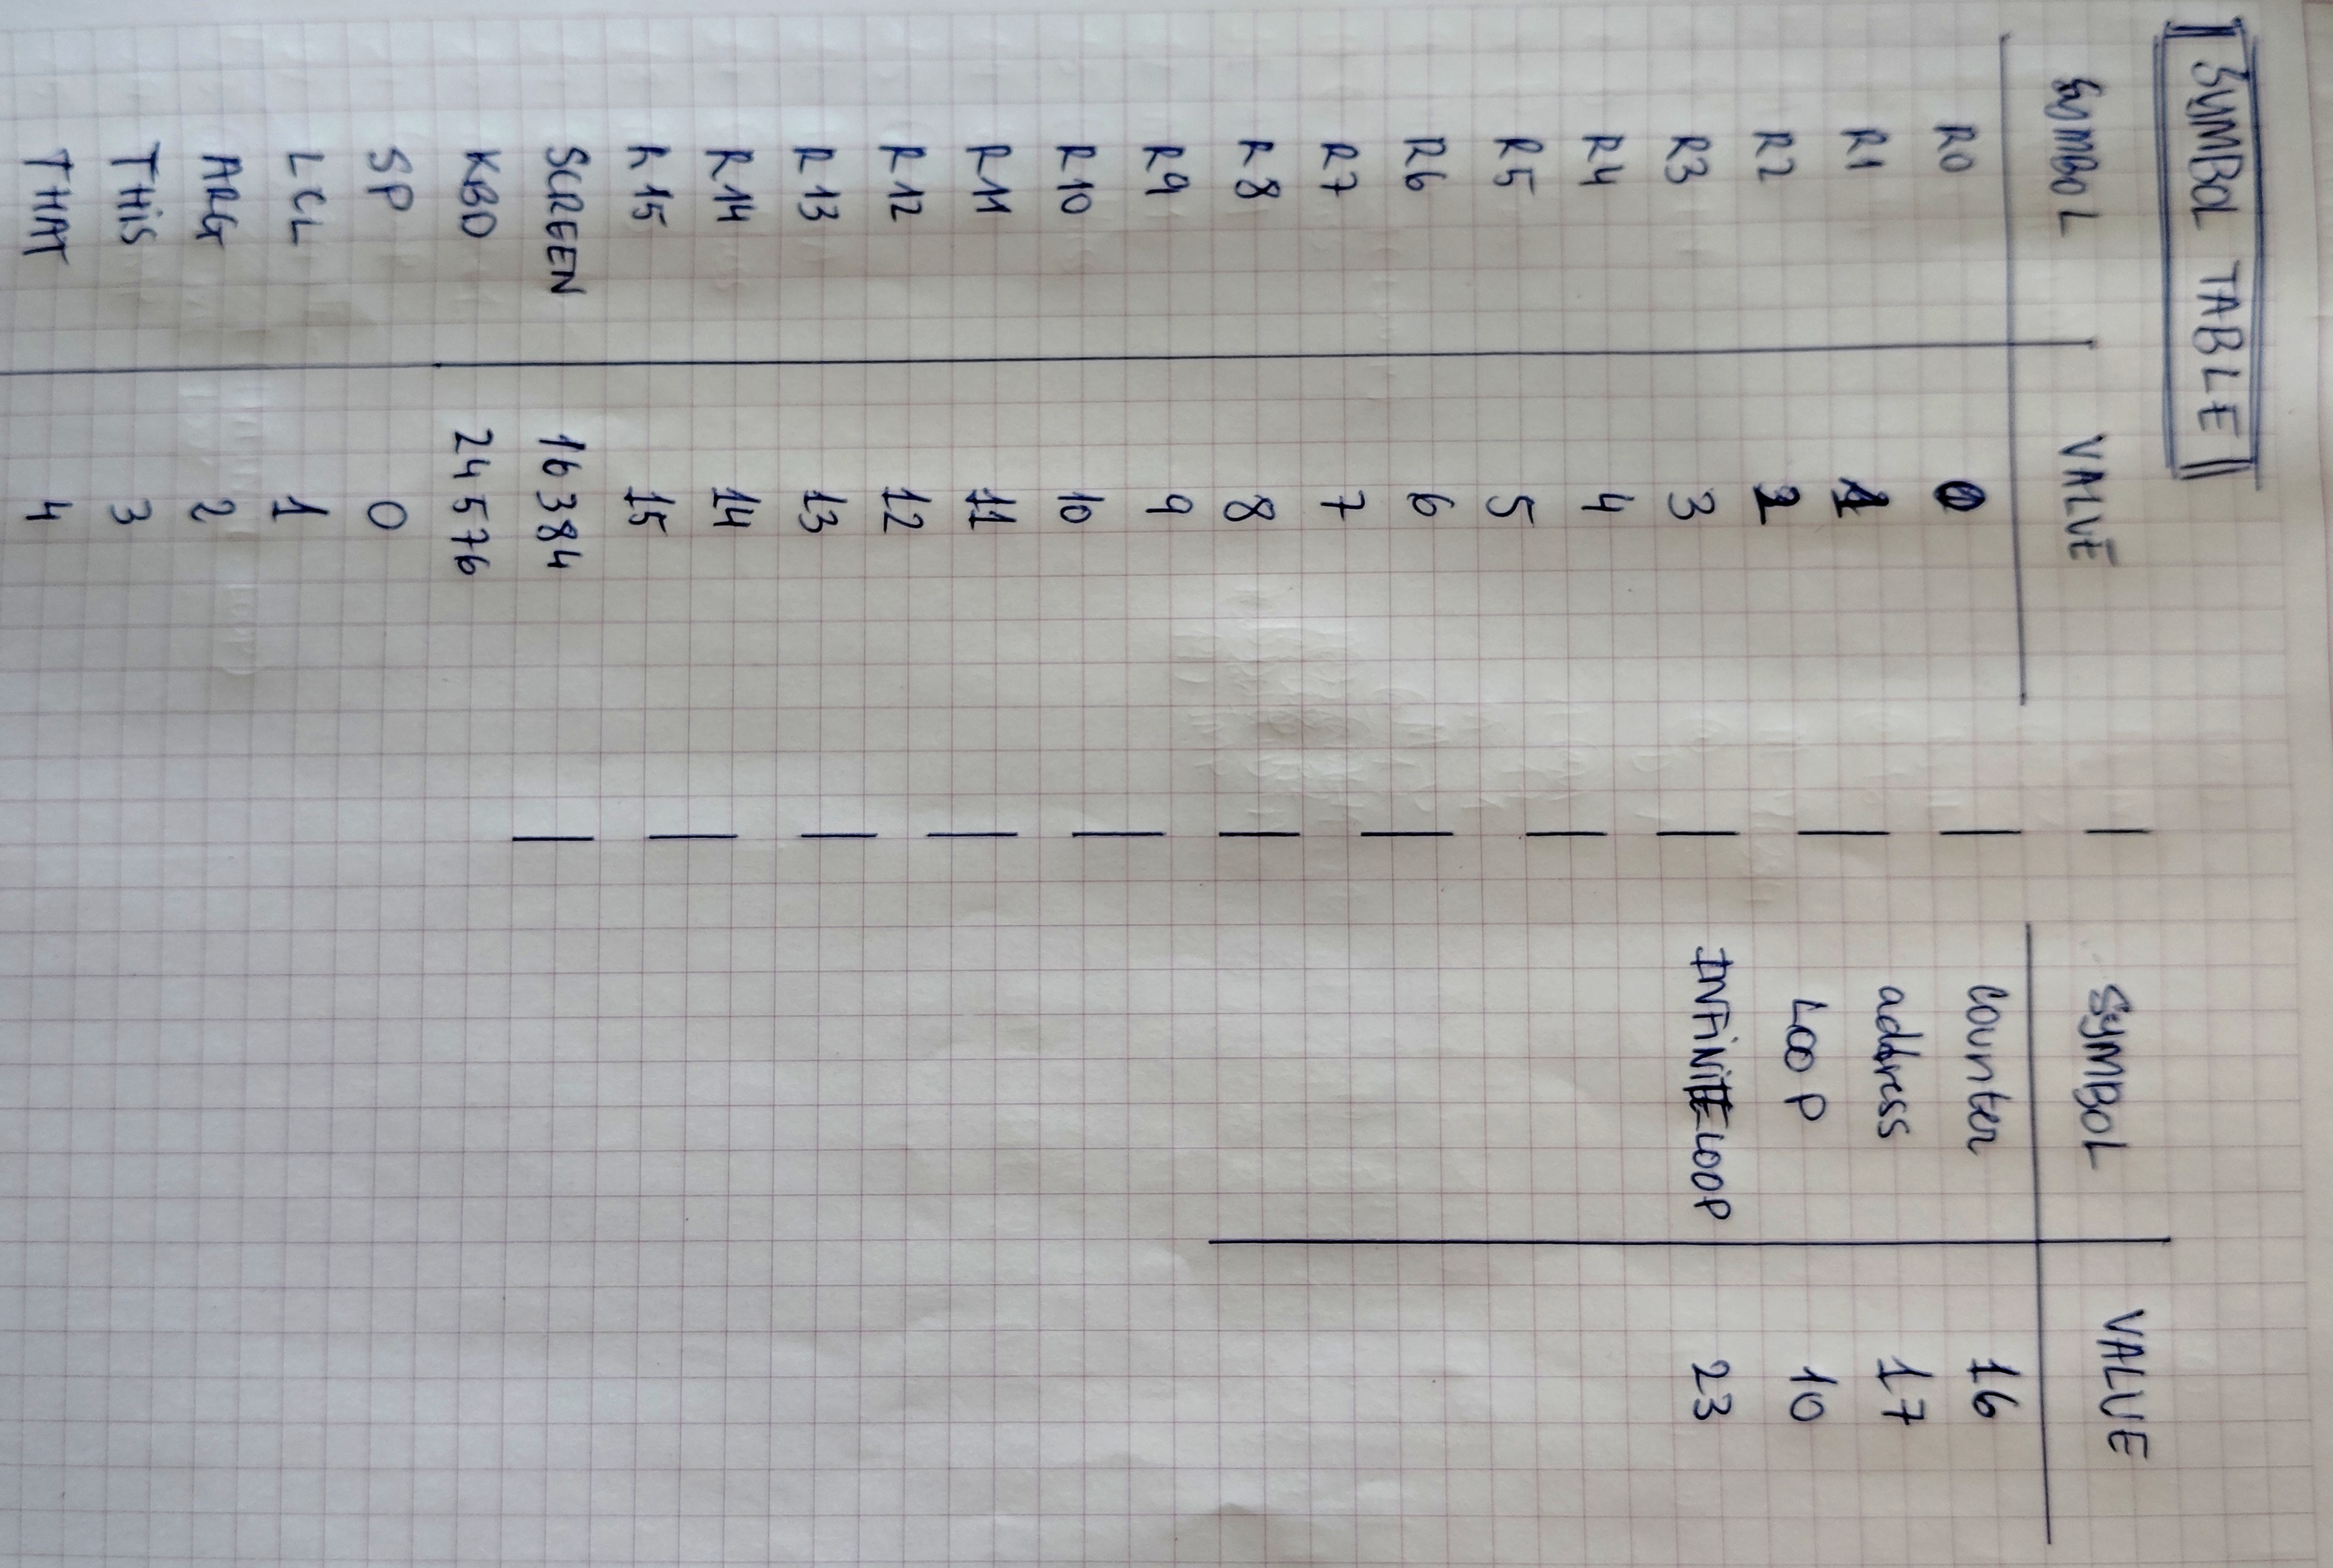 SYMBOL TABLE
SYMBOL VALUE
R0 0
R1 1
R2 2
R3 3
R4 4
R5 5
R6 6
R7 7
R8 8
R9 9
R10 10
R11 11
R12 12
R13 13
R14 14
R15 15
SCREEN 16384
KBD 24576
SP 0
LCL 1
ARG 2
THIS 3
THAT 4
SYMBOL VALUE
counter 16
address 17
LOOP 10
INFINITELOOP 23